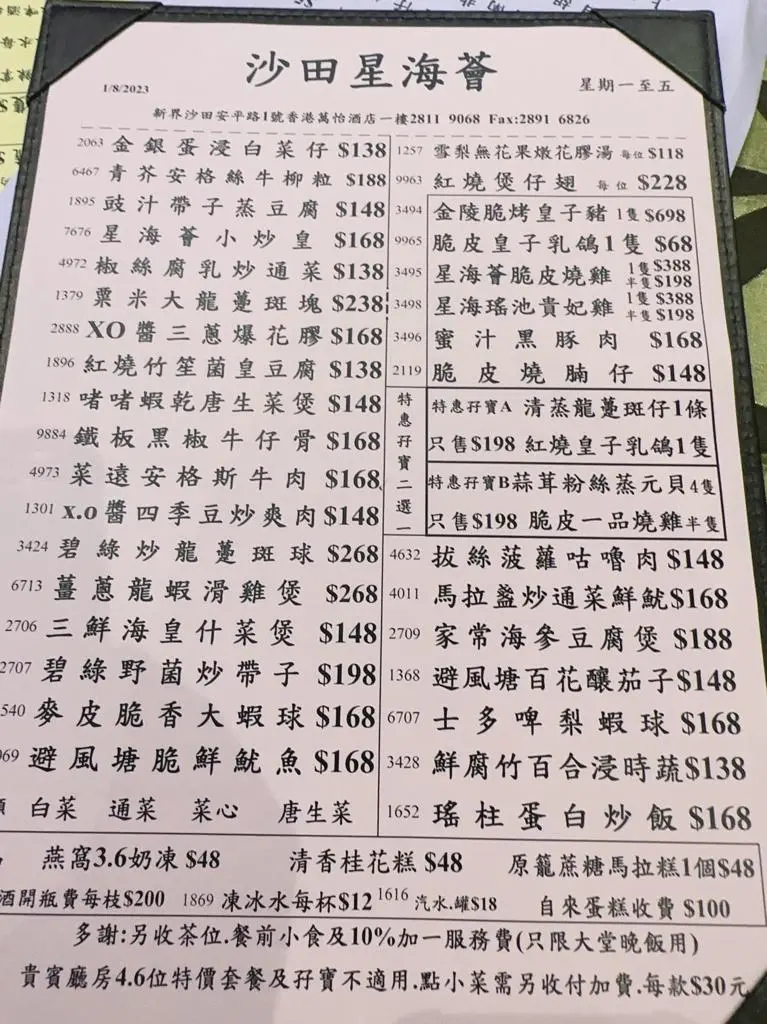 沙田星海薈
1/8/2023
星期一至五
新界沙田安平路1號香港萬怡酒店一樓2811 9068 Fax:2891 6826
2063 金銀蛋浸白菜仔 $138
6467 青芥安格絲牛柳粒 $188
1895 豉汁帶子蒸豆腐 $148
7676 星海薈小炒皇 $168
4972 椒絲腐乳炒通菜 $138
1379 粟米大龍躉斑塊 $238
2888 XO醬三蔥爆花膠 $168
1896 紅燒竹笙菌皇豆腐 $138
1318 啫啫蝦乾唐生菜煲 $148
9884 鐵板黑椒牛仔骨 $168
4973 菜遠安格斯牛肉 $168
1301 x.o醬四季豆炒爽肉 $148
3424 碧綠炒龍躉斑球 $268
6713 薑蔥龍蝦滑雞煲 $268
2706 三鮮海皇什菜煲 $148
2707 碧綠野菌炒帶子 $198
540 麥皮脆香大蝦球 $168
069 避風塘脆鮮魷魚 $168
白菜 通菜 菜心 唐生菜
1257 雪梨無花果燉花膠湯 每位 $118
9963 紅燒煲仔翅 每位 $228
3494 金陵脆烤皇子豬 1隻 $698
9965 脆皮皇子乳鴿1隻 $68
3495 星海薈脆皮燒雞 1隻 $388 半隻 $198
3498 星海瑤池貴妃雞 1隻 $388 半隻 $198
3496 蜜汁黑豚肉 $168
2119 脆皮燒腩仔 $148
特惠孖寶二選一
特惠孖寶A 清蒸龍躉斑仔1條
只售$198 紅燒皇子乳鴿1隻
特惠孖寶B 蒜茸粉絲蒸元貝4隻
只售$198 脆皮一品燒雞半隻
4632 拔絲菠蘿咕嚕肉 $148
4011 馬拉盞炒通菜鮮魷 $168
2709 家常海參豆腐煲 $188
1368 避風塘百花釀茄子 $148
6707 士多啤梨蝦球 $168
3428 鮮腐竹百合浸時蔬 $138
1652 瑤柱蛋白炒飯 $168
燕窩3.6奶凍 $48 清香桂花糕 $48 原籠蔗糖馬拉糕1個$48
酒開瓶費每枝$200 1869 凍冰水每杯$12 1616 汽水.罐$18 自來蛋糕收費 $100
多謝:另收茶位.餐前小食及10%加一服務費(只限大堂晚飯用)
貴賓廳房4.6位特價套餐及孖寶不適用.點小菜需另收付加費.每款$30元